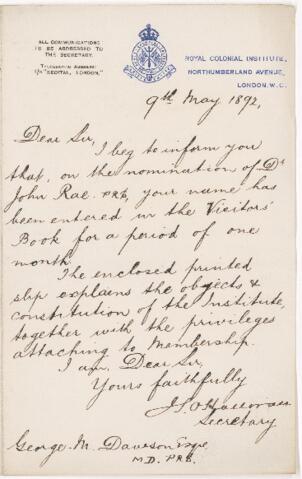 ALL COMMUNICATIONS
TO BE ADDRESSED TO
THE SECRETARY.
TELEGRAPHIC ADDRESS:
"RECITAL, LONDON."
ROYAL COLONIAL INSTITUTE,
NORTHUMBERLAND AVENUE,
LONDON. W.C.
9th May 1892,
Dear Sir,
I beg to inform you
that, on the nomination of Dr
John Rae. F.R.S., your name has
been entered in the Visitors'
Book for a period of one
month.
The enclosed printed
slip explains the objects &
constitution of the Institute,
together with the privileges
attaching to Membership.
I am, Dear Sir,
Yours faithfully
J. S. O'Halloran
Secretary
George. M. Dawson Esqre
M.D. F.R.S.